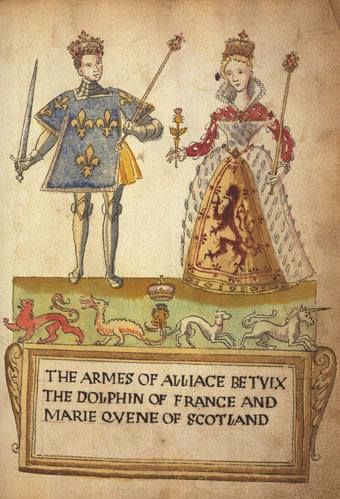 THE ARMES OF ALLIACE BETVIX
THE DOLPHIN OF FRANCE AND
MARIE QVENE OF SCOTLAND